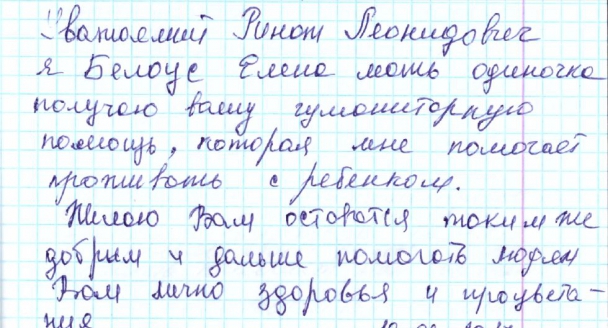 Уважаемый Ринат Леонидович
я Белоус Елена мать одиночка
получаю вашу гуманиторную
помощь, которая мне помогает
проживать с ребенком.
Желаю Вам остоватся таким же
добрым и дальше помогать людям
Вам лично здоровья и процвета-
ния